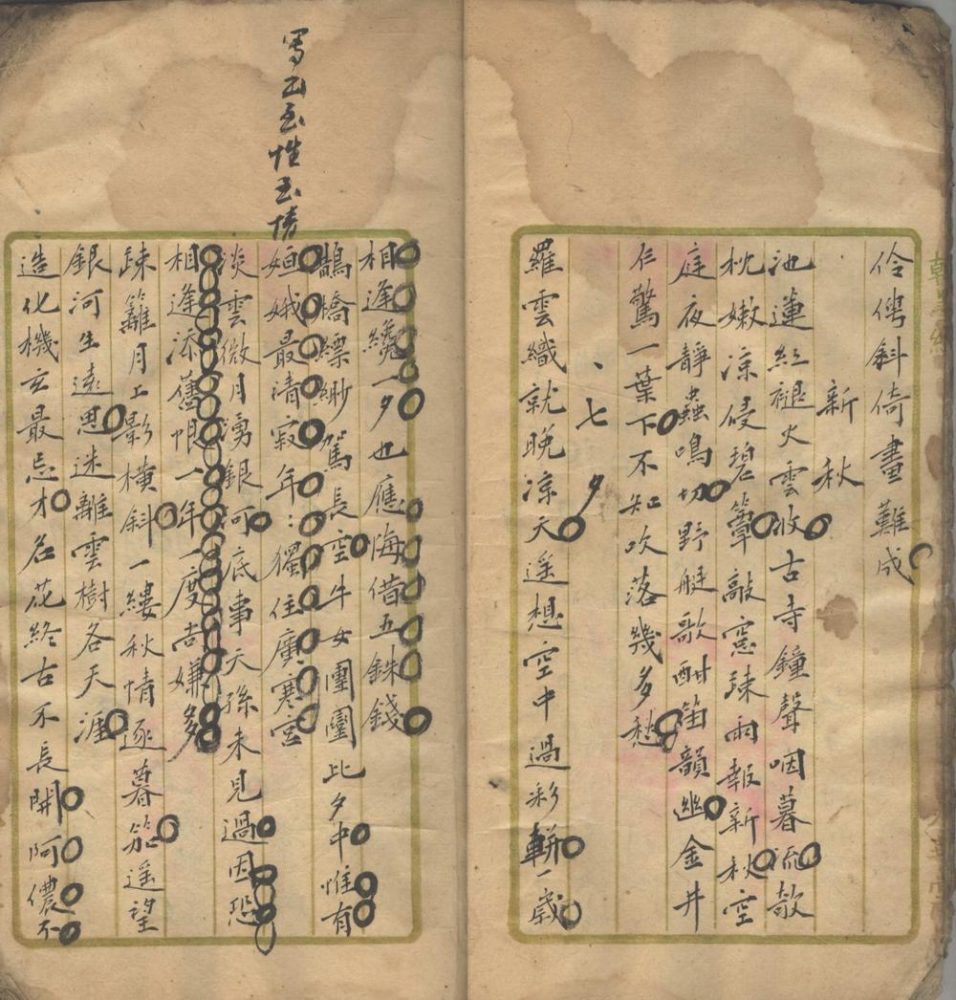 伶俜斜倚畫難成
新秋
池蓮紅褪火雲收古寺鐘聲咽暮流欹
枕嫩凉侵碧簟敲窓疎雨報新秋空
庭夜靜蟲鳴切野艇歌酣笛韻幽金井
乍驚一葉下不知吹落幾多愁
七夕
羅雲織就晚凉天遥想空中過彩輧一歲
相逢纔一夕也應悔借五銖錢
鵲橋縹緲駕長空牛女團圞此夕中惟有
姮娥最清寂年〻獨住廣寒宮
淡雲微月湧銀河底事天孫未見過因恐
相逢添舊恨一年一度尚嫌多
疎籬月上影橫斜一縷秋情逐暮笳遥望
銀河生遠思迷離雲樹各天涯
造化機玄最忌才名花終古不長開阿儂不
寫至性至情